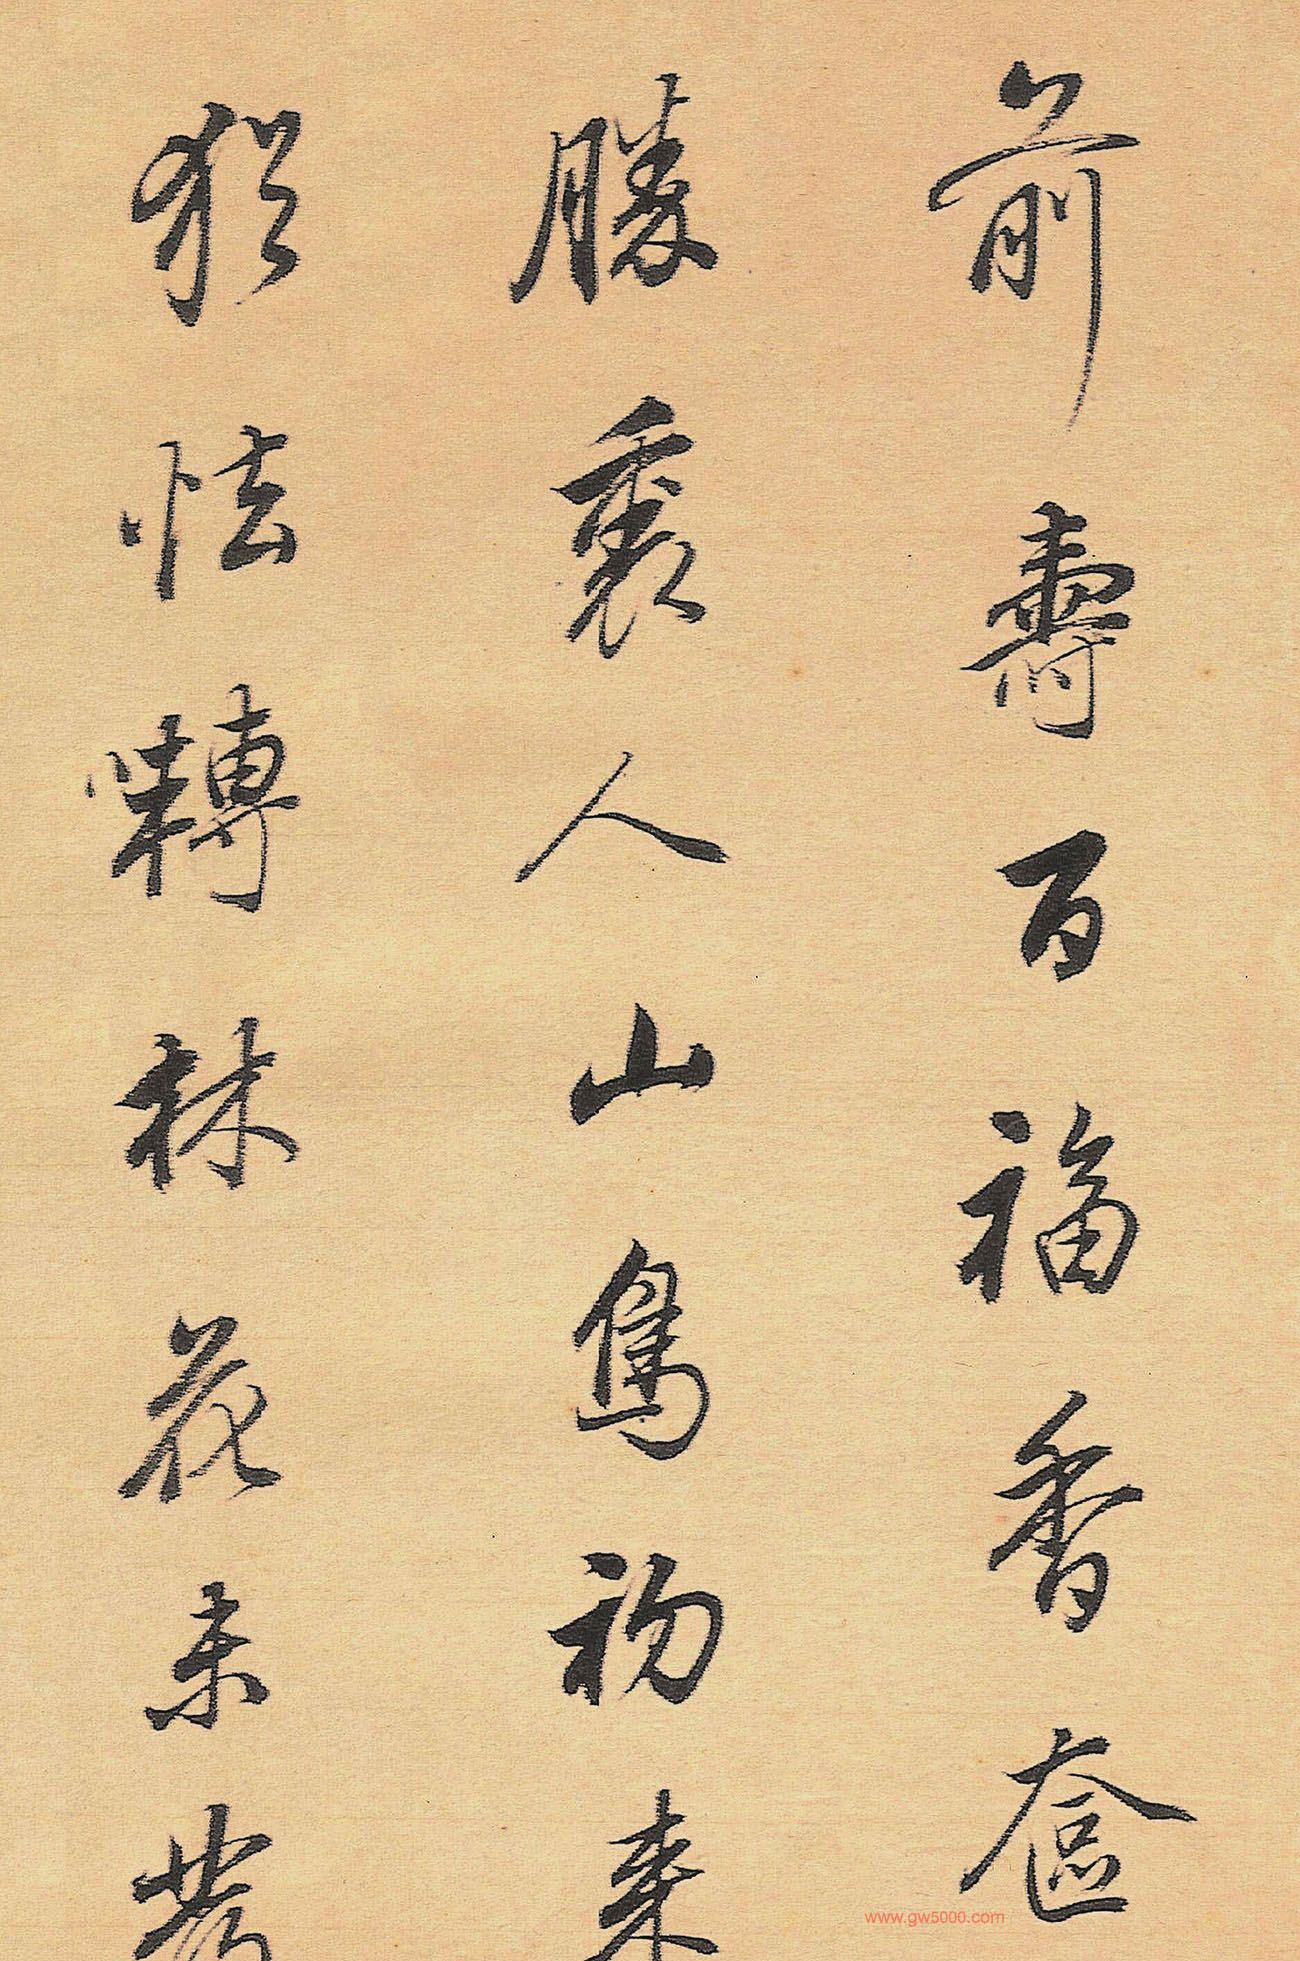 前壽百福香奩
勝裏人山鳥初来
猶怯囀林花未發
www.gw5000.com